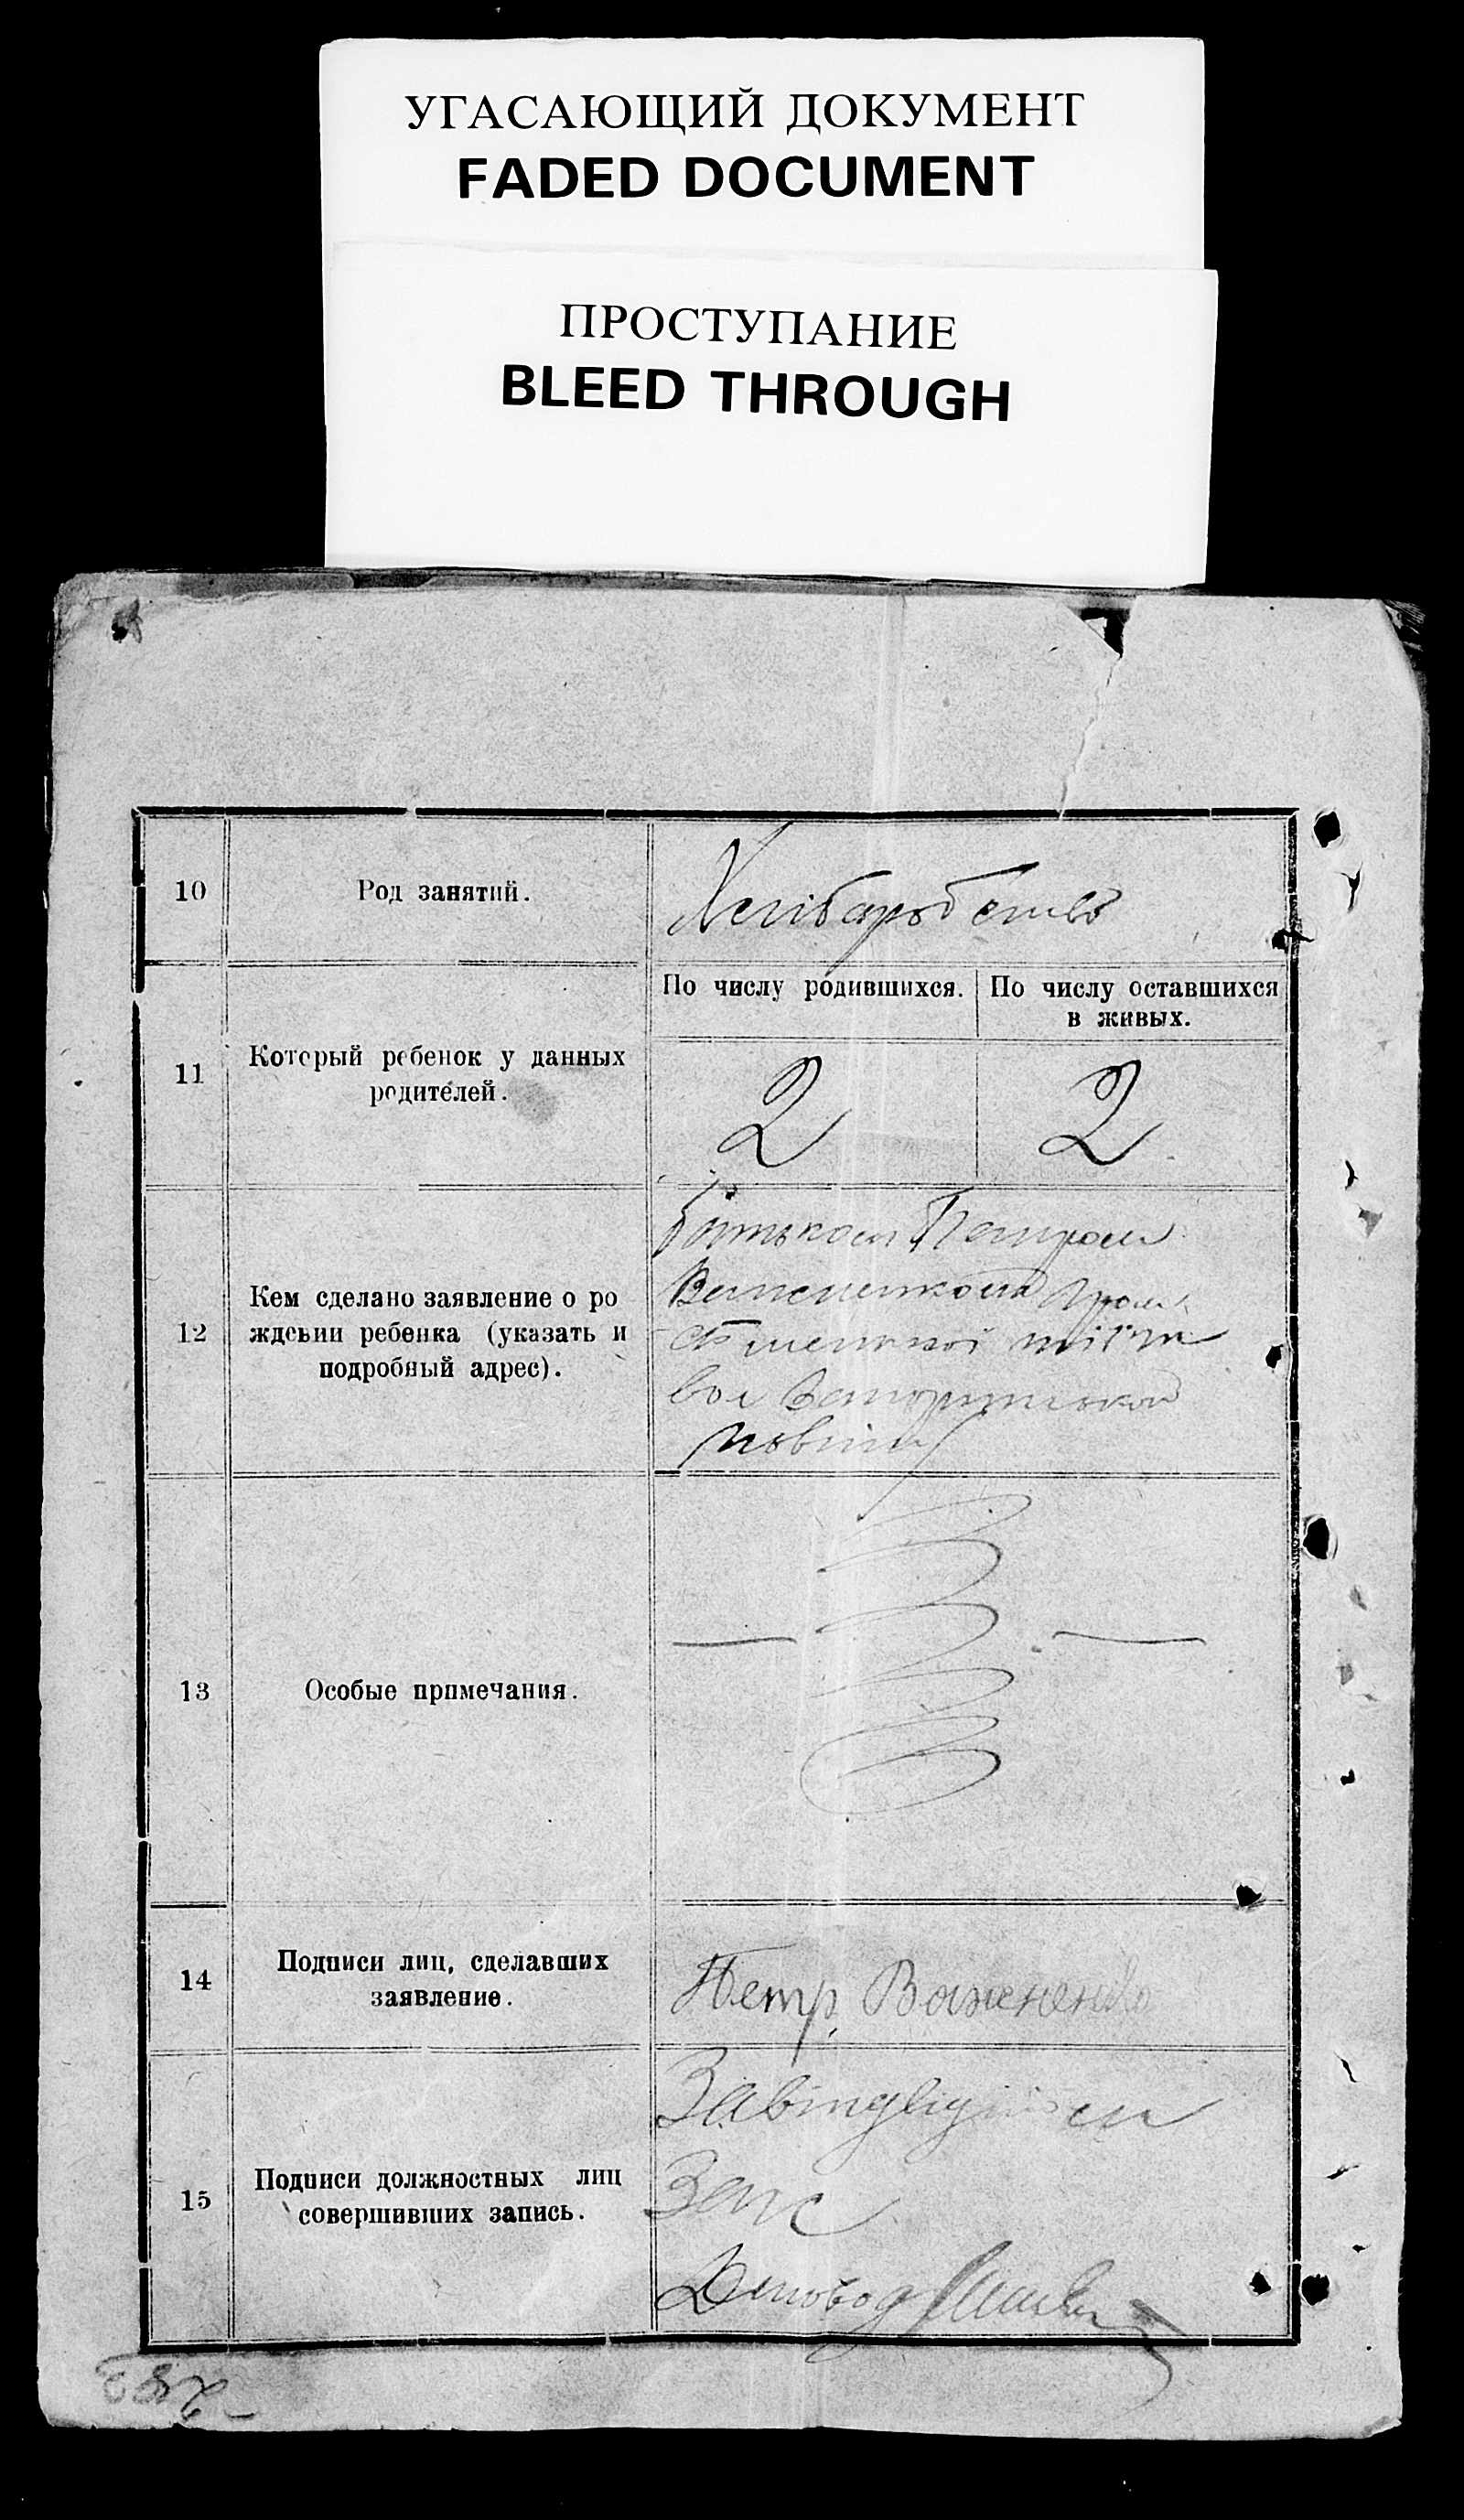 УГАСАЮЩИЙ ДОКУМЕНТ
FADED DOCUMENT
ПРОСТУПАНИЕ
BLEED THROUGH
10
Род занятий.
Хлібаробство
11
Который ребенок у данных
родителей.
По числу родившихся.
По числу оставшихся
в живых.
2
2
12
Кем сделано заявление о ро
ждении ребенка (указать и
подробный адрес).
Батьком Петром
вол
13
Особые примечания.
14
Подписи лиц, сделавших
заявление.
Петр Важененко
15
Подписи должностных лиц
совершивших запись.
Загс
Діловод